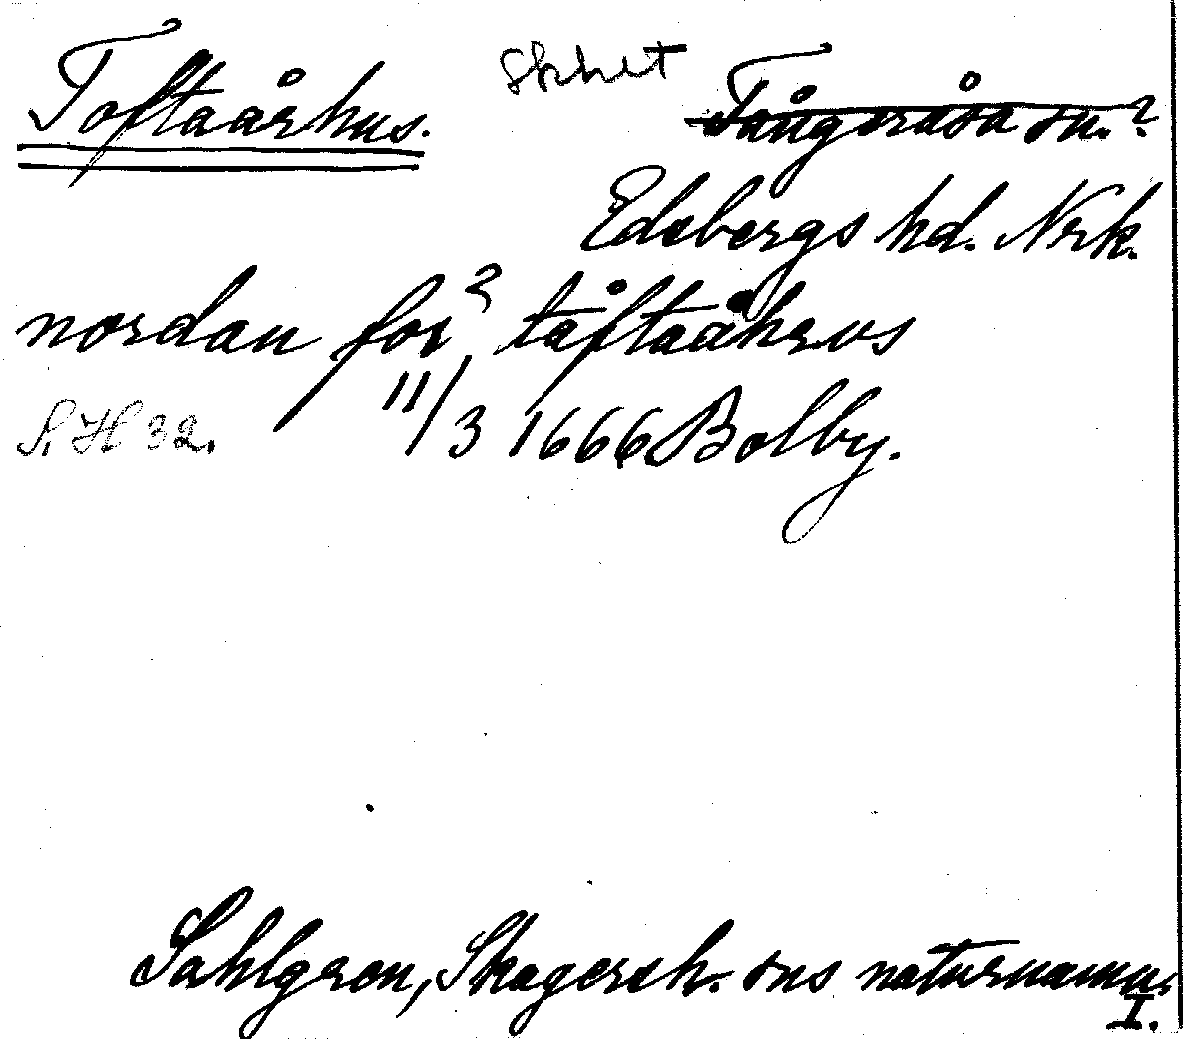 Toftaårhus. Skhet Tångeråsa sn.?
Edsbergs hd. Nrk.
nordan for? tåftaåhrus
11/3 1666 Bolby.
S. H 32.
Sahlgren, Skagersh. sns naturnamn.
I.